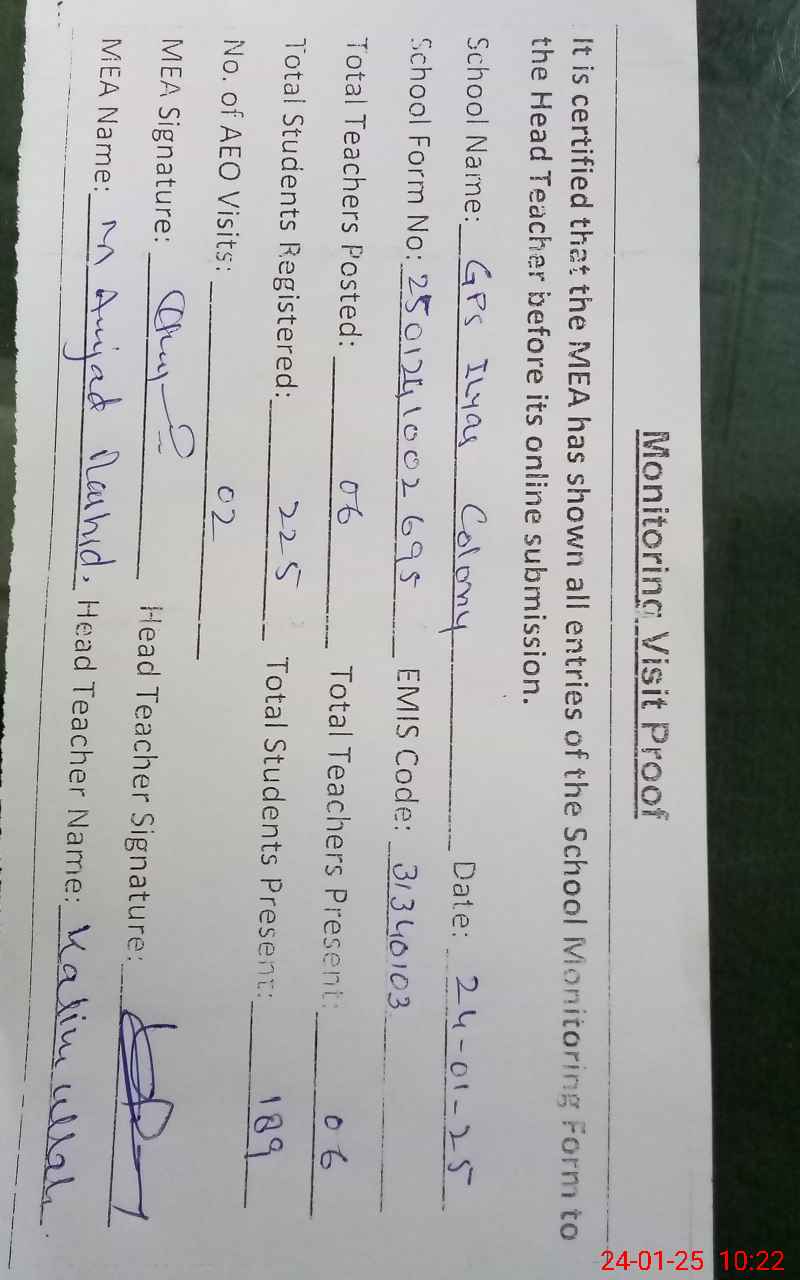 Monitoring Visit Proof
It is certified that the MEA has shown all entries of the School Monitoring Form to
the Head Teacher before its online submission.
School Name: GPS Ilyas Colony Date: 24-01-25
School Form No: 25012241002695 EMIS Code: 31340103
Total Teachers Posted: 06 Total Teachers Present: 06
Total Students Registered: 225 Total Students Present: 189
No. of AEO Visits: 02
MEA Signature: Head Teacher Signature:
MEA Name: M Amjad Rashid. Head Teacher Name: Kalim ullah.
24-01-25 10:22